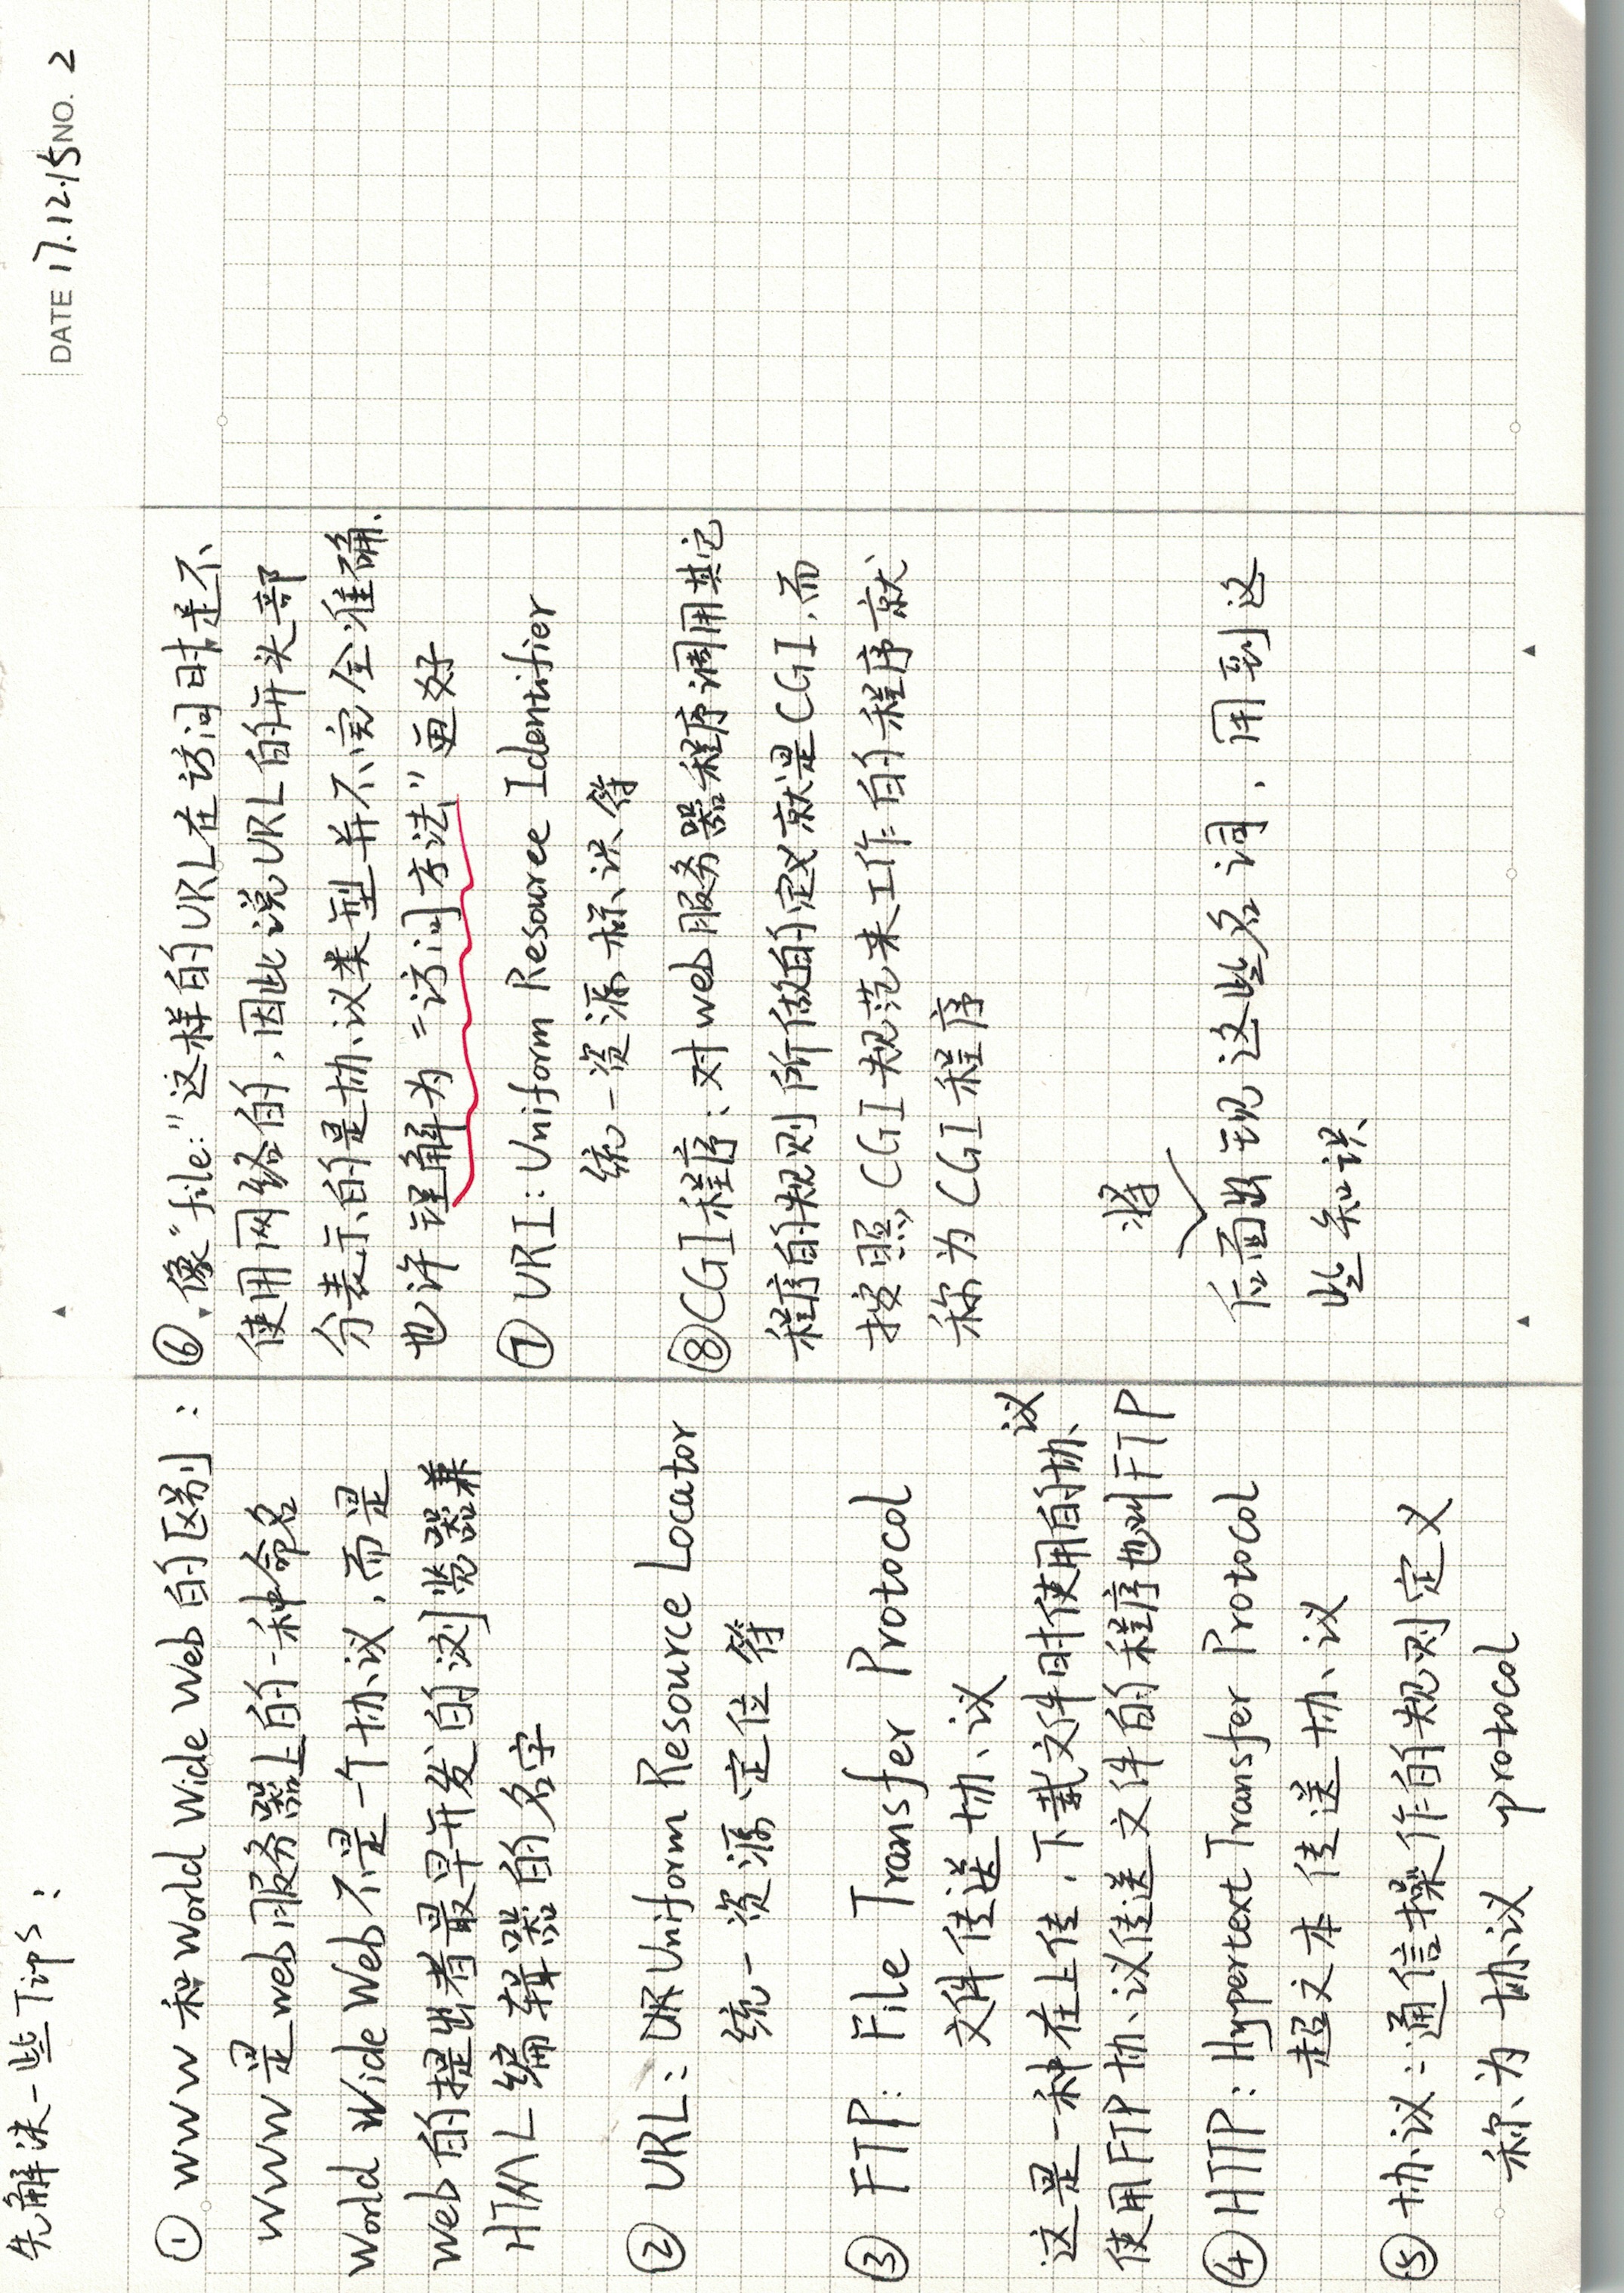 DATE 17.12.15 NO. 2
先解决一些Tips：
① www 和 World Wide Web 的区别：
www 是 web 服务器上的一种命名
World Wide Web 不是一个协议，而是
Web 的提出者最早开发的浏览器兼
HTML 编辑器的名字
② URL： Uniform Resource Locator
统一资源定位符
③ FTP： File Transfer Protocol
文件传送协议
这是一种在上传，下载文件时使用的协议
使用FTP协议传送文件的程序也叫FTP
④ HTTP：Hypertext Transfer Protocol
超文本传送协议
⑤ 协议：通信操作的规则定义
称为协议 protocol
⑥ 像"file:"这样的URL在访问时是不
使用网络的，因此说URL的开头部
分表示的是协议类型并不完全准确.
也许理解为"访问方法"更好
⑦ URI：Uniform Resource Identifier
统一资源标识符
⑧ CGI程序：对web服务器程序调用其它
程序的规则所做的定义就是CGI，而
按照CGI规范来工作的程序就
称为CGI程序
后面将出现这些名词，用到这
些知识